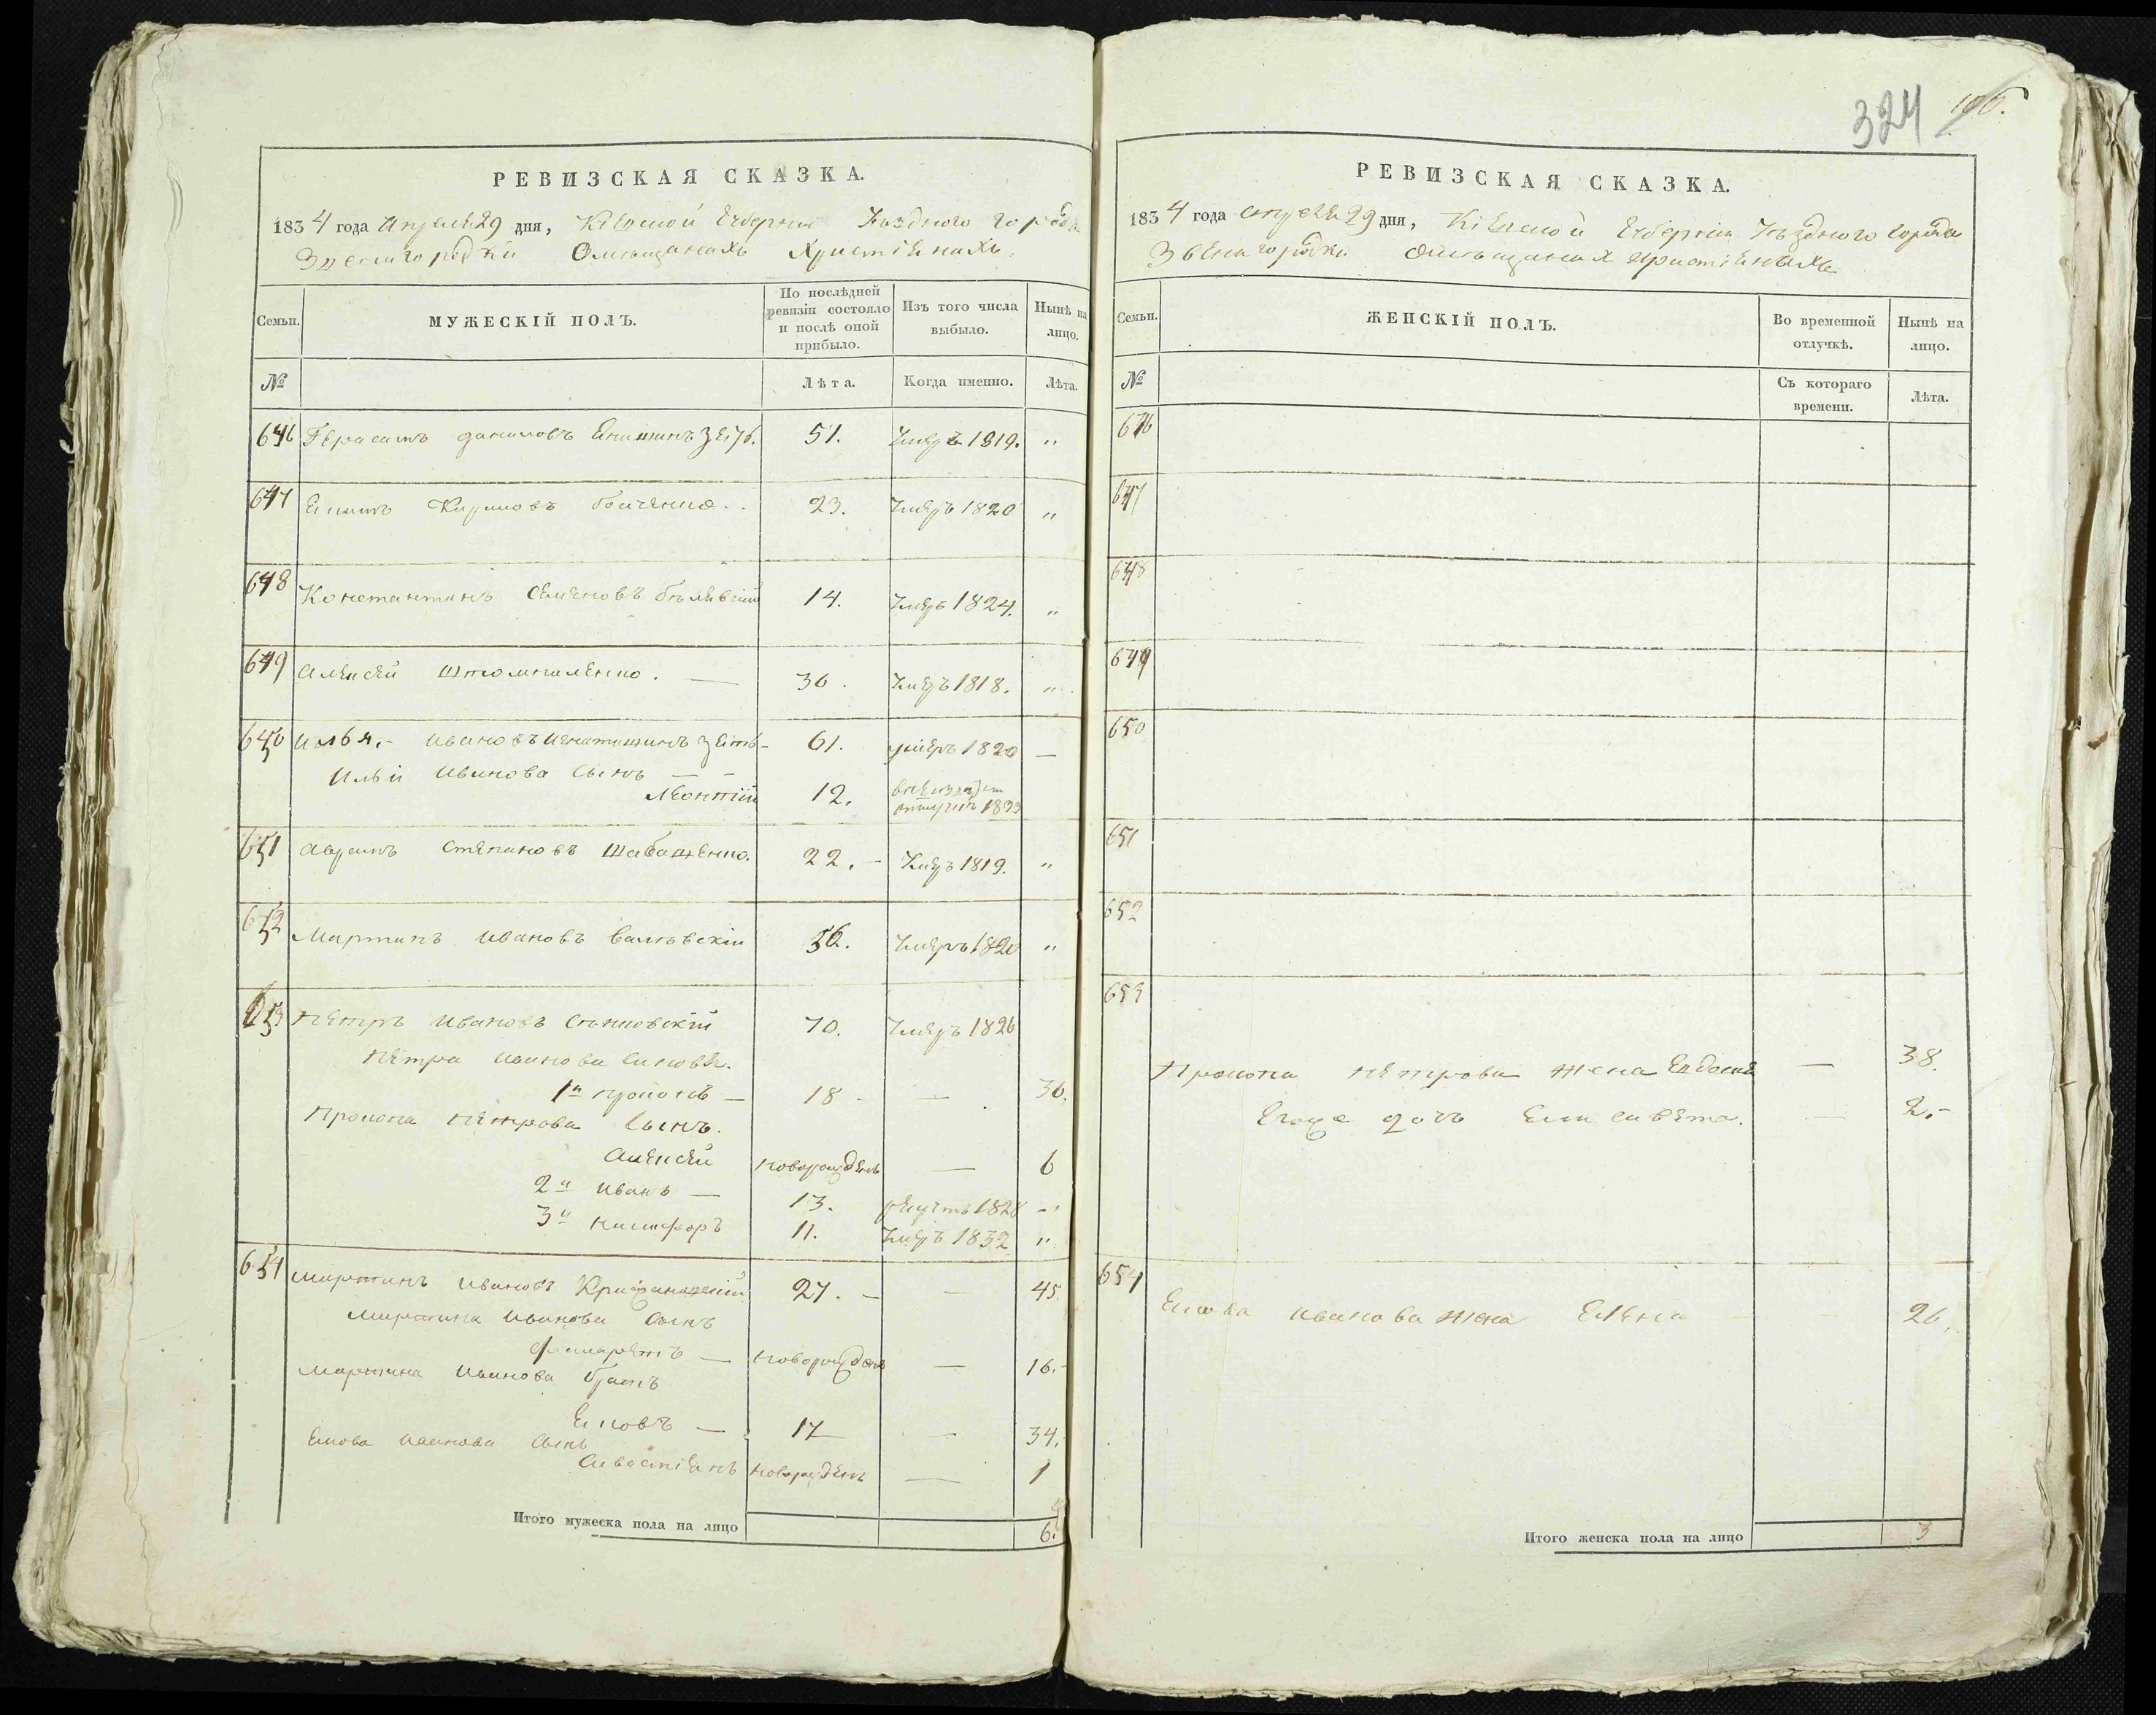 324
РЕВИЗСКАЯ СКАЗКА.
1834 года Апреля 29 дня, Кіевской Губерніи Уѣзднаго города
Звенигородки Омѣщанахъ Христіянахъ.
Семьи.
МУЖЕСКІЙ ПОЛЪ.
По послѣдней ревизіи состояло и послѣ оной прибыло.
Изъ того числа выбыло.
Нынѣ на лицо.
№
Лѣта.
Когда именно.
Лѣта.
646 Герасимъ Даниловъ зять. 51. Умеръ 1819. „
647 Екимъ Кириловъ 23. Умеръ 1820 „
648 Константинъ Семеновъ Бѣлявскій 14. Умеръ 1824. „
649 Алексей 36. Умеръ 1818. „
650 Илья Ивановъ зять 61. умеръ 1820 —
Ильи Иванова Сынъ — —
Леонтій 12. 1833
651 Аврамъ Степановъ Шабашенко. 22. — Умеръ 1819. „
652 Мартинъ Ивановъ 56. Умеръ 1820 „
653 Петръ Ивановъ 70. Умеръ 1826
Петра Иванова Синовья.
1й Прокопъ — 18 — — 36.
Прокопа Петрова Сынъ.
Алексей новорожденъ — 6
2й Иванъ — 13. рекрутъ 1828 „
3й Никифоръ 11. Умеръ 1832 „
654 Мартинъ Ивановъ 27. — — 45.
Мартина Иванова Сынъ
Филаретъ — новорожденъ — 16.
Мартина Иванова братъ
Яковъ — 17 — 34.
Якова Иванова Сынъ
Сивастіянъ новорожденъ — 1
Итого мужеска пола на лицо 6.
РЕВИЗСКАЯ СКАЗКА.
1834 года Апреля 29 дня, Кіевской Губерніи Уѣзднаго города
Звенигородки Омѣщанахъ Христіянахъ
Семьи.
ЖЕНСКІЙ ПОЛЪ.
Во временной отлучкѣ.
Нынѣ на лицо.
№
Съ котораго времени.
Лѣта.
646
647
648
649
650
651
652
653
Прокопа Петрова жена Евдокія — 38.
Егоже дочь Елисавета. — 2. —
654
Якова Иванова жена Елена 26.
Итого женска пола на лицо 3